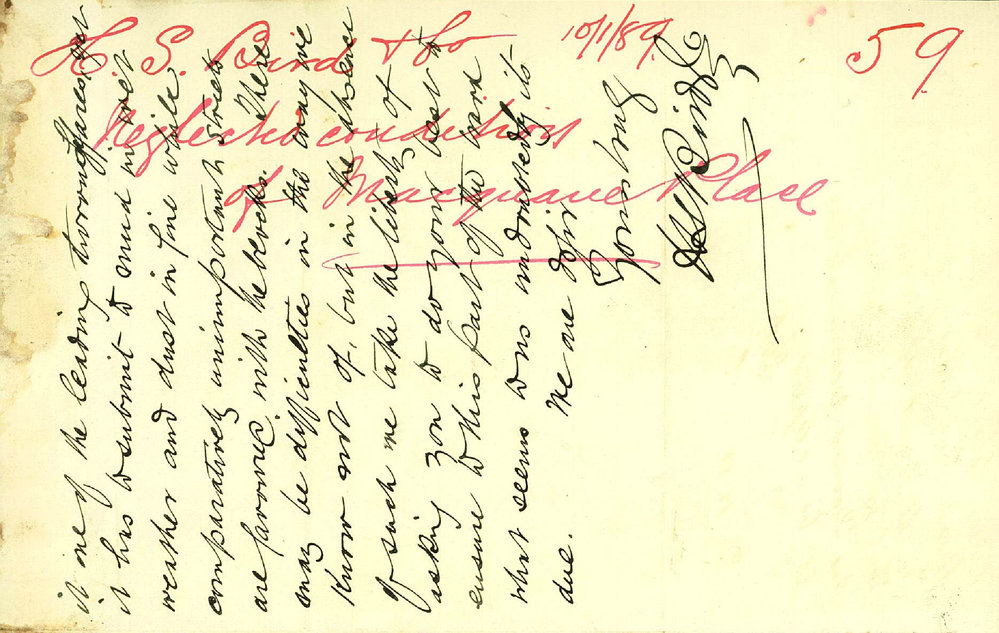 H. S. Bird & Co 10/1/89. 59
Neglected condition
of Macquarie Place
it one of the leading thoroughfares, yet
it has to submit to mud in wet
weather and dust in fine while
comparatively unimportant streets
are favored with the blocks. There
may be difficulties in the way we
know not of, but in the absence
of such we take the liberty of
asking you to do your best to
ensure to this part of the ward
what seems to us undoubtedly its
due. We are Dr Sir
Yours truly
H S Bird & Co